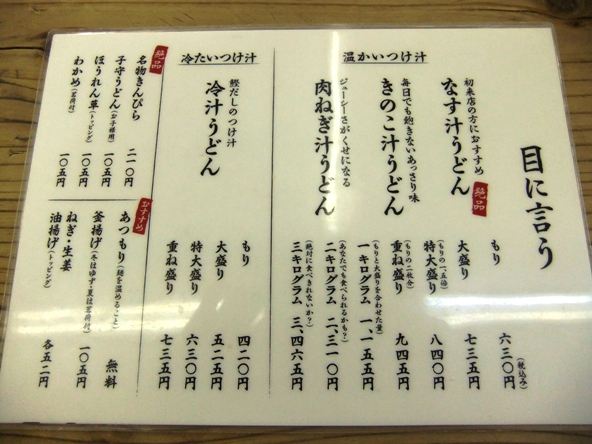 目に言う
温かいつけ汁
初来店の方におすすめ
なす汁うどん
絶品
毎日でも飽きないあっさり味
きのこ汁うどん
ジューシーさがくせになる
肉ねぎ汁うどん
もり 六三〇円(税込み)
大盛り 七三五円
特大盛り(もりの一、五倍) 八四〇円
重ね盛り(もりの二枚分) 九四五円
一キログラム(もりと大盛りを合わせた量) 一、一五五円
二キログラム(あなたでも食べられるかも?) 二、三一〇円
三キログラム(絶対に食べきれないか?) 三、四六五円
冷たいつけ汁
鰹だしのつけ汁
冷汁うどん
もり 四二〇円
大盛り 五二五円
特大盛り 六三〇円
重ね盛り 七三五円
絶品
名物きんぴら 二一〇円
子守うどん(お子様用) 一〇五円
ほうれん草(トッピング) 一〇五円
わかめ(茗荷付) 一〇五円
おすすめ
あつもり(麺を温めること) 無料
釜揚げ(冬はゆず・夏は茗荷付) 一〇五円
ねぎ・生姜
油揚げ(トッピング) 各五二円